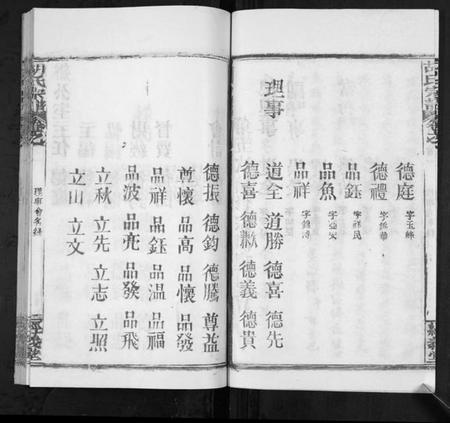 德庭 字玉峰
德禮
品鈺 字祥民
品魚
品祥
理事
道全 道勝 德喜 德先
德喜 德獻 德義 德貴
德振 德鈞 德騰 尊益
尊懷 品高 品懷 品發
品祥 品鈺 品温 品福
品波 品亮 品發 品飛
立秋 立先 立志 立照
立山 立文
胡氏宗譜